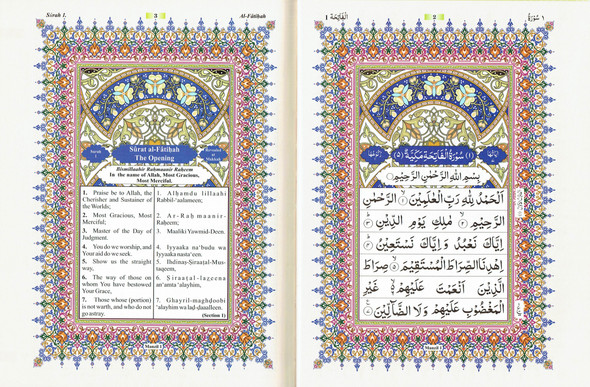 Sûrah 1.
3
Al-Fâtihah
Sûrat al-Fâtihah
The Opening
Surah
1
Revealed
at
Makkah
Bismillaahir Rahmaanir Raheem
In the name of Allah, Most Gracious,
Most Merciful.
1. Praise be to Allah, the
Cherisher and Sustainer of
the Worlds;
2. Most Gracious, Most
Merciful;
3. Master of the Day of
Judgment.
4. You do we worship, and
Your aid do we seek.
5. Show us the straight
way,
6. The way of those on
whom You have bestowed
Your Grace,
7. Those whose (portion)
is not wrath, and who do not
go astray.
1. Alhamdu lillaahi
Rabbil-‘aalameen;
2. Ar-Rahmaanir-
Raheem;
3. Maaliki Yawmid-Deen.
4. Iyyaaka na‘budu wa
Iyyaaka nasta‘een.
5. Ihdinas-Siraatal-Mus-
taqeem,
6. Siraatal-lazeena
an‘amta ‘alayhim,
7. Ghayril-maghdoobi
‘alayhim wa lad-daaalleen.
(Section 1)
Manzil 1
الْفَاتِحَة ١
2
سُوْرَةُ ١
(١) سُوْرَةُ الْفَاتِحَةِ مَكِّيَّةٌ (٥)
بِسْمِ اللهِ الرَّحْمٰنِ الرَّحِيْمِ
اَلْحَمْدُ لِلّٰهِ رَبِّ الْعٰلَمِيْنَ ١ الرَّحْمٰنِ
الرَّحِيْمِ ٢ مٰلِكِ يَوْمِ الدِّيْنِ ٣
اِيَّاكَ نَعْبُدُ وَ اِيَّاكَ نَسْتَعِيْنُ ٤
اِهْدِنَا الصِّرَاطَ الْمُسْتَقِيْمَ ٥ صِرَاطَ
الَّذِيْنَ اَنْعَمْتَ عَلَيْهِمْ ٦ غَيْرِ
الْمَغْضُوْبِ عَلَيْهِمْ وَلَا الضَّآلِّيْنَ ٧
Manzil 1